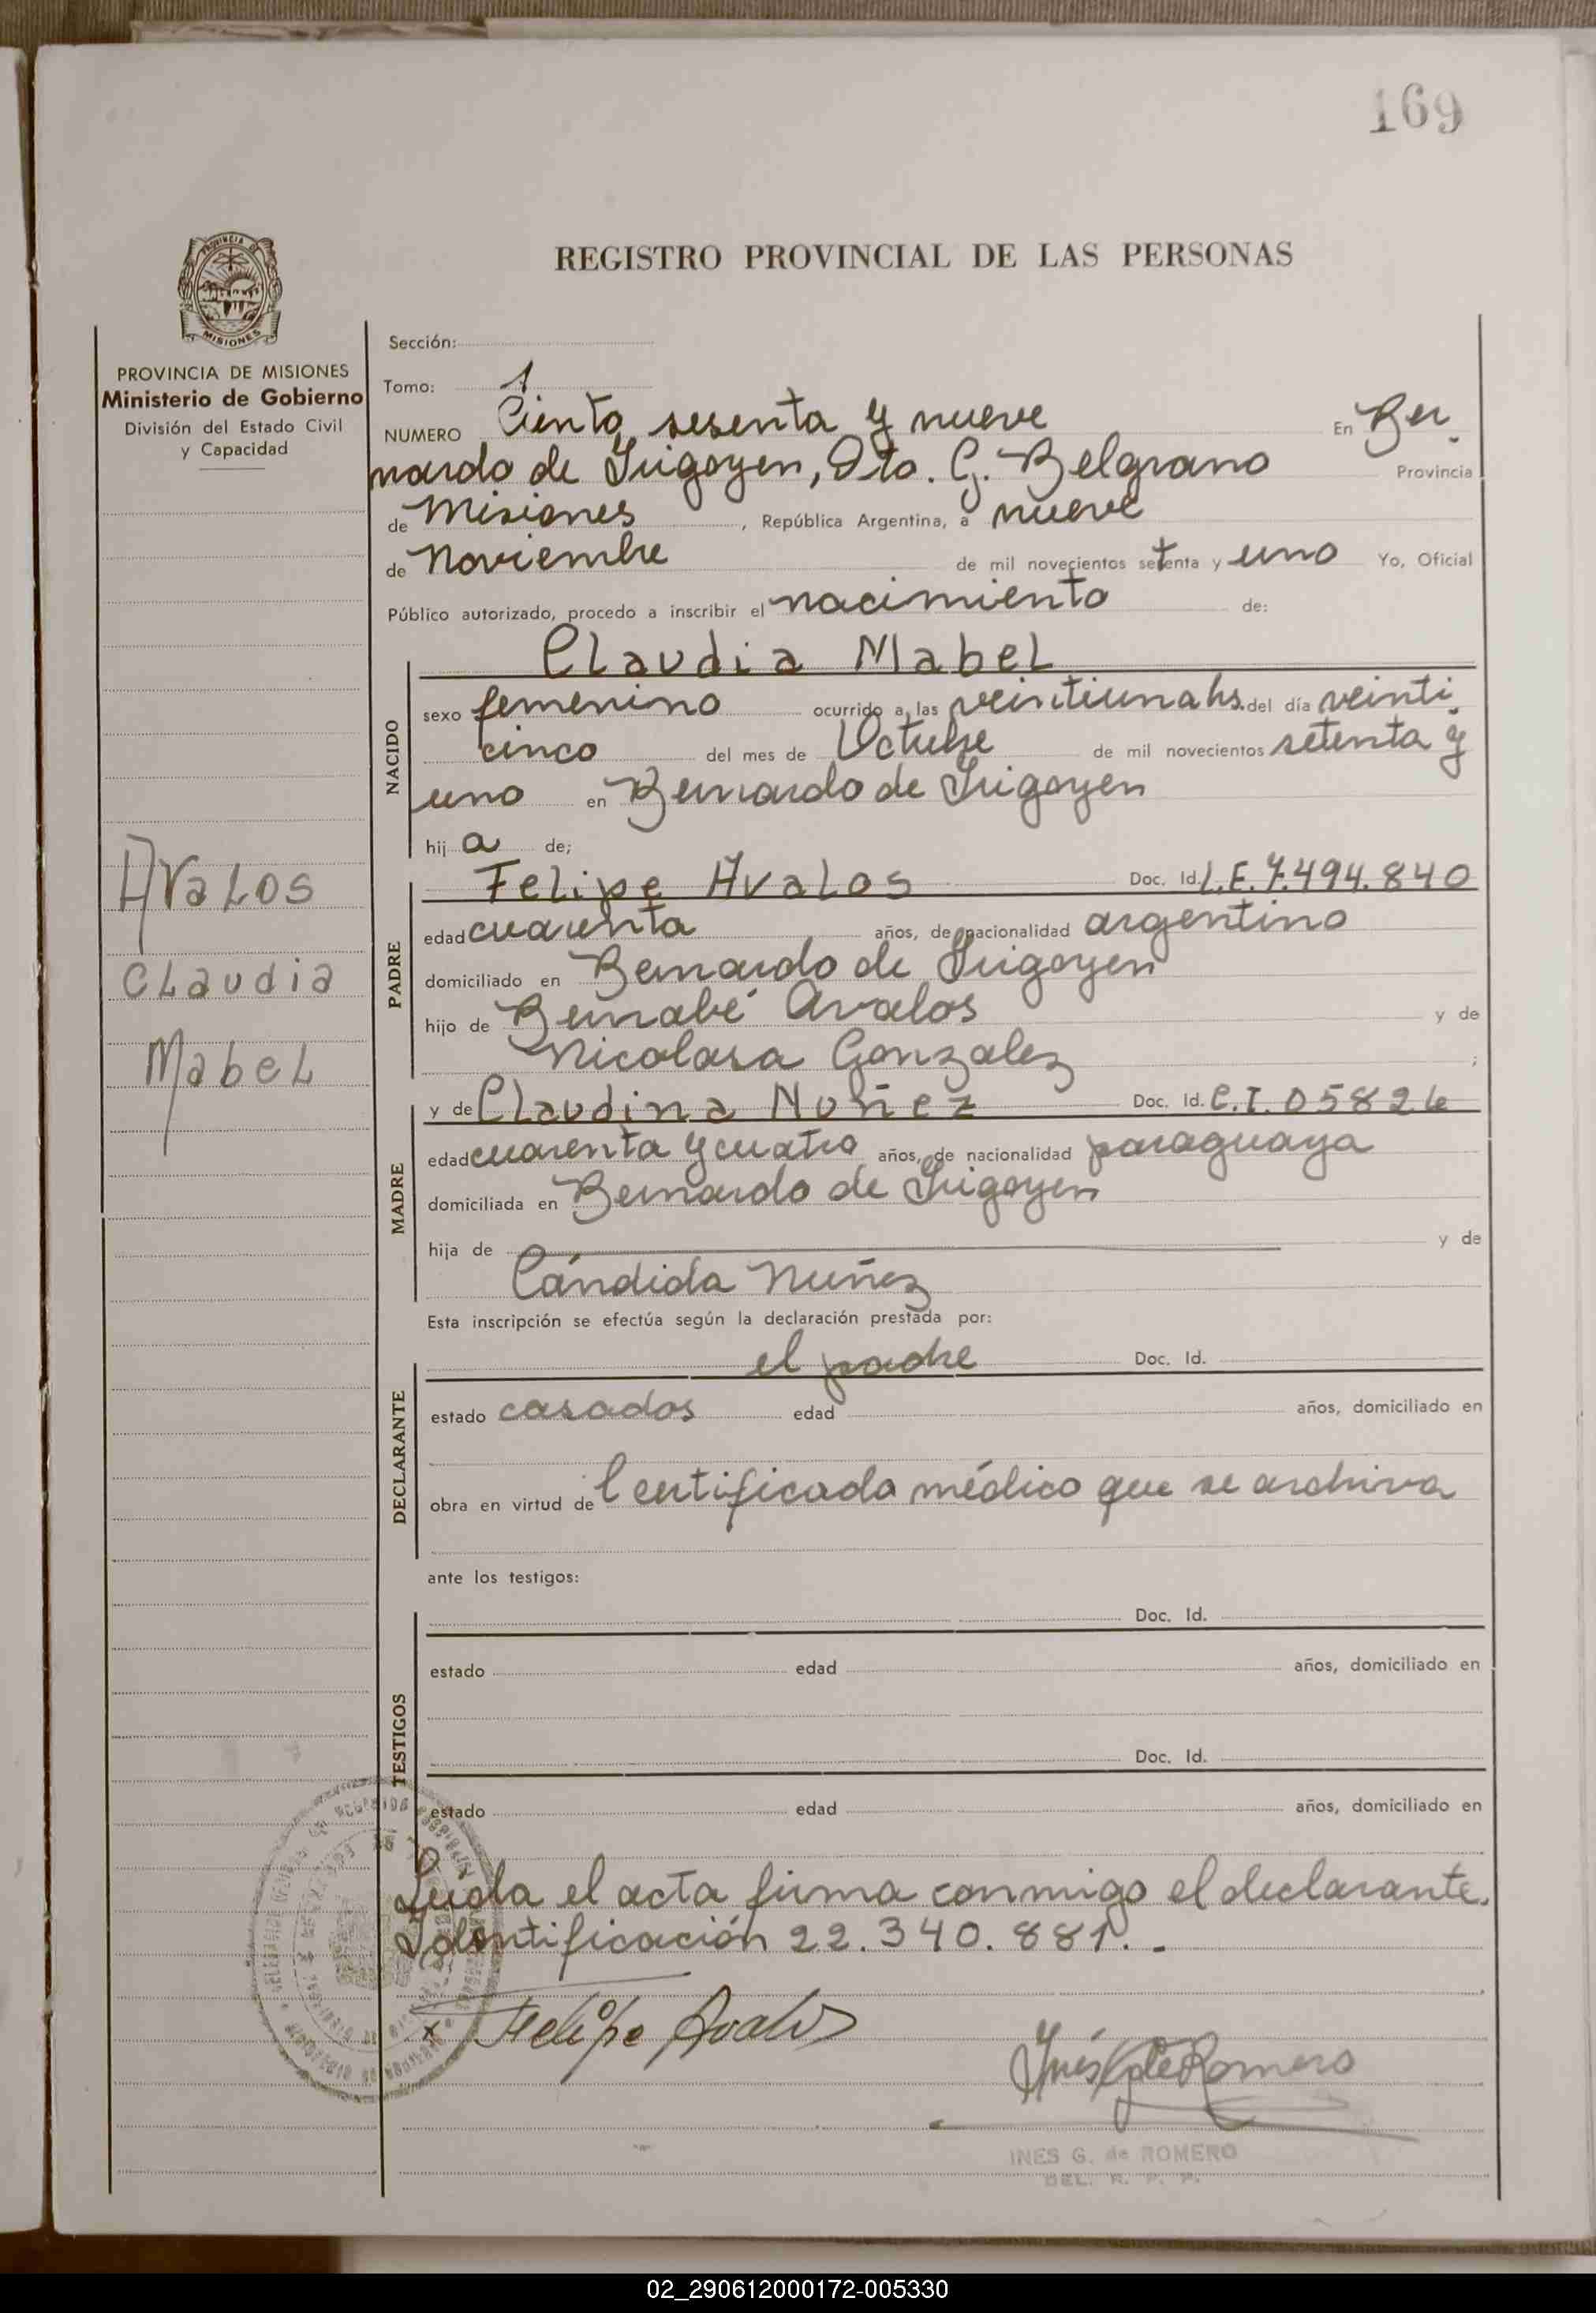 169
REGISTRO PROVINCIAL DE LAS PERSONAS
PROVINCIA DE MISIONES
Ministerio de Gobierno
División del Estado Civil
y Capacidad
Sección:
Tomo: 1
NUMERO Ciento sesenta y nueve En Ber
nardo de Irigoyen, Dto. G. Belgrano Provincia
de Misiones, República Argentina, a nueve
de Noviembre de mil novecientos setenta y uno Yo, Oficial
Público autorizado, procedo a inscribir el nacimiento de:
NACIDO
Claudia Mabel
sexo femenino ocurrido a las veintiuna hs. del día veinti
cinco del mes de Octubre de mil novecientos setenta y
uno en Bernardo de Irigoyen
hija de;
AvaLos
CLaudia
MabeL
PADRE
Felipe Avalos Doc. Id. L.E. 7.494.840
edad cuarenta años, de nacionalidad argentino
domiciliado en Bernardo de Irigoyen
hijo de Bernabé Avalos y de
Nicolasa Gonzalez ;
MADRE
y de Claudina Nuñez Doc. Id. C.I. 05826
edad cuarenta y cuatro años, de nacionalidad paraguaya
domiciliada en Bernardo de Irigoyen
hija de y de
Cándida Nuñez
Esta inscripción se efectúa según la declaración prestada por:
DECLARANTE
el padre Doc. Id.
estado casados edad años, domiciliado en
obra en virtud de Certificado médico que se archiva
ante los testigos:
TESTIGOS
Doc. Id.
estado edad años, domiciliado en
Doc. Id.
estado edad años, domiciliado en
Leída el acta firma conmigo el declarante.
Identificación 22.340.881.-
x Felipe Avalos
Inés G de Romero
INES G. de ROMERO
DEL. R. P. P.
02_290612000172-005330